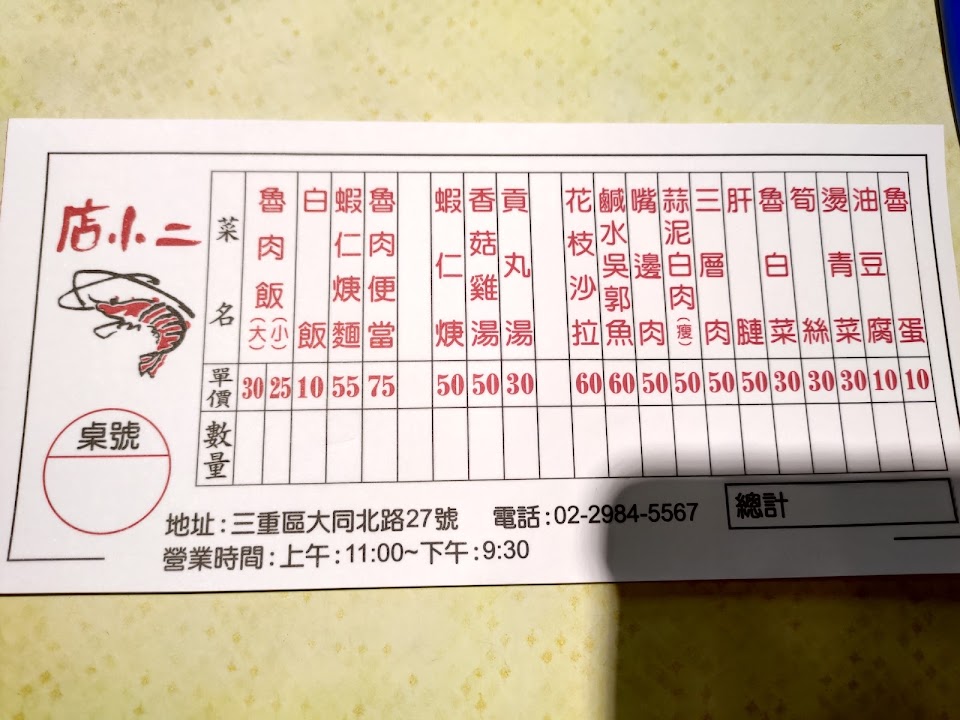 店小二
菜名
魯肉飯(大)(小)
白飯
蝦仁焿麵
魯肉便當
蝦仁焿
香菇雞湯
貢丸湯
花枝沙拉
鹹水吳郭魚
嘴邊肉
蒜泥白肉(瘦)
三層肉
肝腱
魯白菜
筍絲
燙青菜
油豆腐
魯蛋
單價 30 25 10 55 75 50 50 30 60 60 50 50 50 50 30 30 30 10 10
數量
桌號
總計
地址:三重區大同北路27號 電話:02-2984-5567
營業時間:上午:11:00~下午:9:30